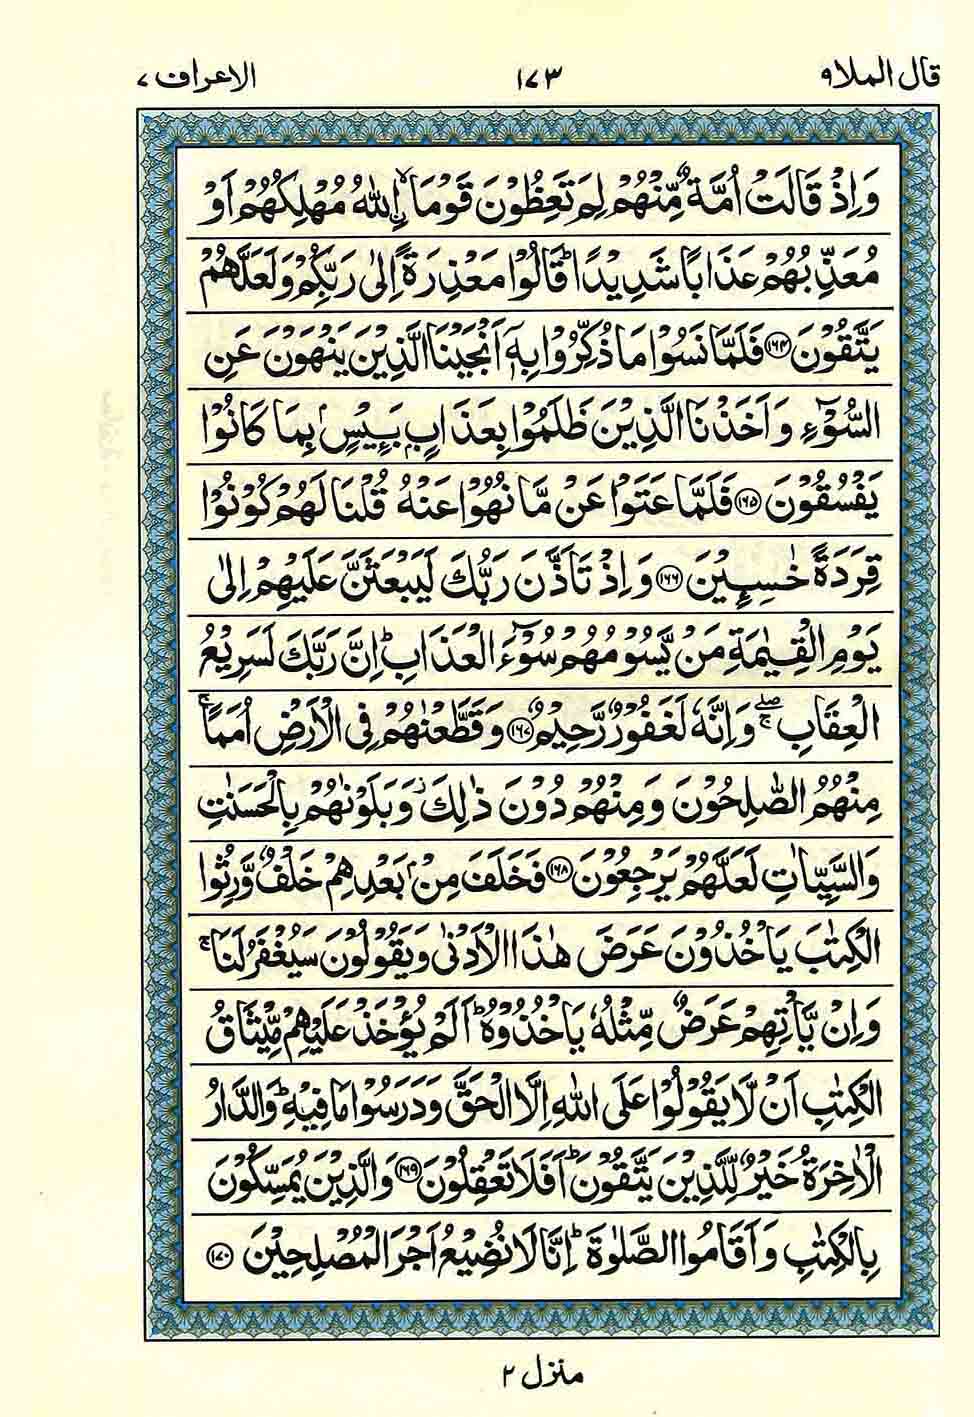 قال الملا ٩ ١٧٣ الاعراف ٧
وَاِذْ قَالَتْ اُمَّةٌ مِّنْهُمْ لِمَ تَعِظُوْنَ قَوْمَا ۙ اِ۟للّٰهُ مُهْلِكُهُمْ اَوْ
مُعَذِّبُهُمْ عَذَابًا شَدِيْدًا ؕ قَالُوْا مَعْذِرَةً اِلٰى رَبِّكُمْ وَلَعَلَّهُمْ
يَتَّقُوْنَ ۝۱۶۴ فَلَمَّا نَسُوْا مَا ذُكِّرُوْا بِهٖۤ اَنْجَيْنَا الَّذِيْنَ يَنْهَوْنَ عَنِ
السُّوْٓءِ وَاَخَذْنَا الَّذِيْنَ ظَلَمُوْا بِعَذَابٍۭ بَـِٔيْسٍۭ بِمَا كَانُوْا
يَفْسُقُوْنَ ۝۱۶۵ فَلَمَّا عَتَوْا عَنْ مَّا نُهُوْا عَنْهُ قُلْنَا لَهُمْ كُوْنُوْا
قِرَدَةً خٰسِـِٕيْنَ ۝۱۶۶ وَاِذْ تَاَذَّنَ رَبُّكَ لَيَبْعَثَنَّ عَلَيْهِمْ اِلٰى
يَوْمِ الْقِيٰمَةِ مَنْ يَّسُوْمُهُمْ سُوْٓءَ الْعَذَابِ ؕ اِنَّ رَبَّكَ لَسَرِيْعُ
الْعِقَابِ ۖۚ وَاِنَّهٗ لَغَفُوْرٌ رَّحِيْمٌ ۝۱۶۷ وَقَطَّعْنٰهُمْ فِى الْاَرْضِ اُمَمًا ۚ
مِنْهُمُ الصّٰلِحُوْنَ وَمِنْهُمْ دُوْنَ ذٰلِكَ ؗ وَبَلَوْنٰهُمْ بِالْحَسَنٰتِ
وَالسَّيِّاٰتِ لَعَلَّهُمْ يَرْجِعُوْنَ ۝۱۶۸ فَخَلَفَ مِنْۢ بَعْدِهِمْ خَلْفٌ وَّرِثُوا
الْكِتٰبَ يَاْخُذُوْنَ عَرَضَ هٰذَا الْاَدْنٰى وَيَقُوْلُوْنَ سَيُغْفَرُ لَنَا ۚ
وَاِنْ يَّاْتِهِمْ عَرَضٌ مِّثْلُهٗ يَاْخُذُوْهُ ؕ اَلَمْ يُؤْخَذْ عَلَيْهِمْ مِّيْثَاقُ
الْكِتٰبِ اَنْ لَّا يَقُوْلُوْا عَلَى اللّٰهِ اِلَّا الْحَقَّ وَدَرَسُوْا مَا فِيْهِ ؕ وَالدَّارُ
الْاٰخِرَةُ خَيْرٌ لِّلَّذِيْنَ يَتَّقُوْنَ ؕ اَفَلَا تَعْقِلُوْنَ ۝۱۶۹ وَالَّذِيْنَ يُمَسِّكُوْنَ
بِالْكِتٰبِ وَاَقَامُوا الصَّلٰوةَ ؕ اِنَّا لَا نُضِيْعُ اَجْرَ الْمُصْلِحِيْنَ ۝۱۷۰
منزل ٢